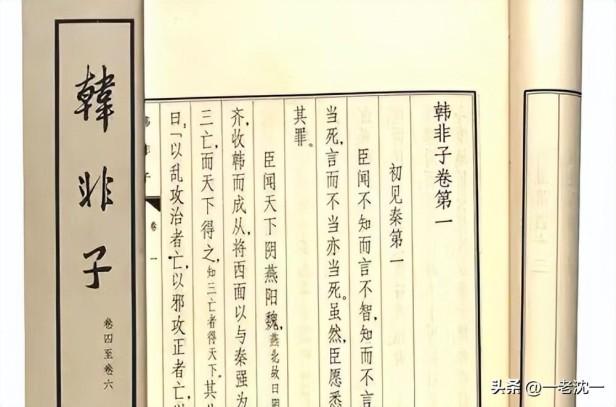 韓非子
卷四至卷六
韩非子卷第一
初见秦第一
臣闻不知而言不智,知而不言
当死,言而不当亦当死。虽然,臣愿悉
其罪。
臣闻天下阴燕阳魏,燕北故曰阴
齐,收韩而成从,将西面以与秦强为
三亡,而天下得之,知三亡者得天下。其
曰:「以乱攻治者亡,以邪攻正者亡,以
韩非子
卷一
头条 @一老沈一